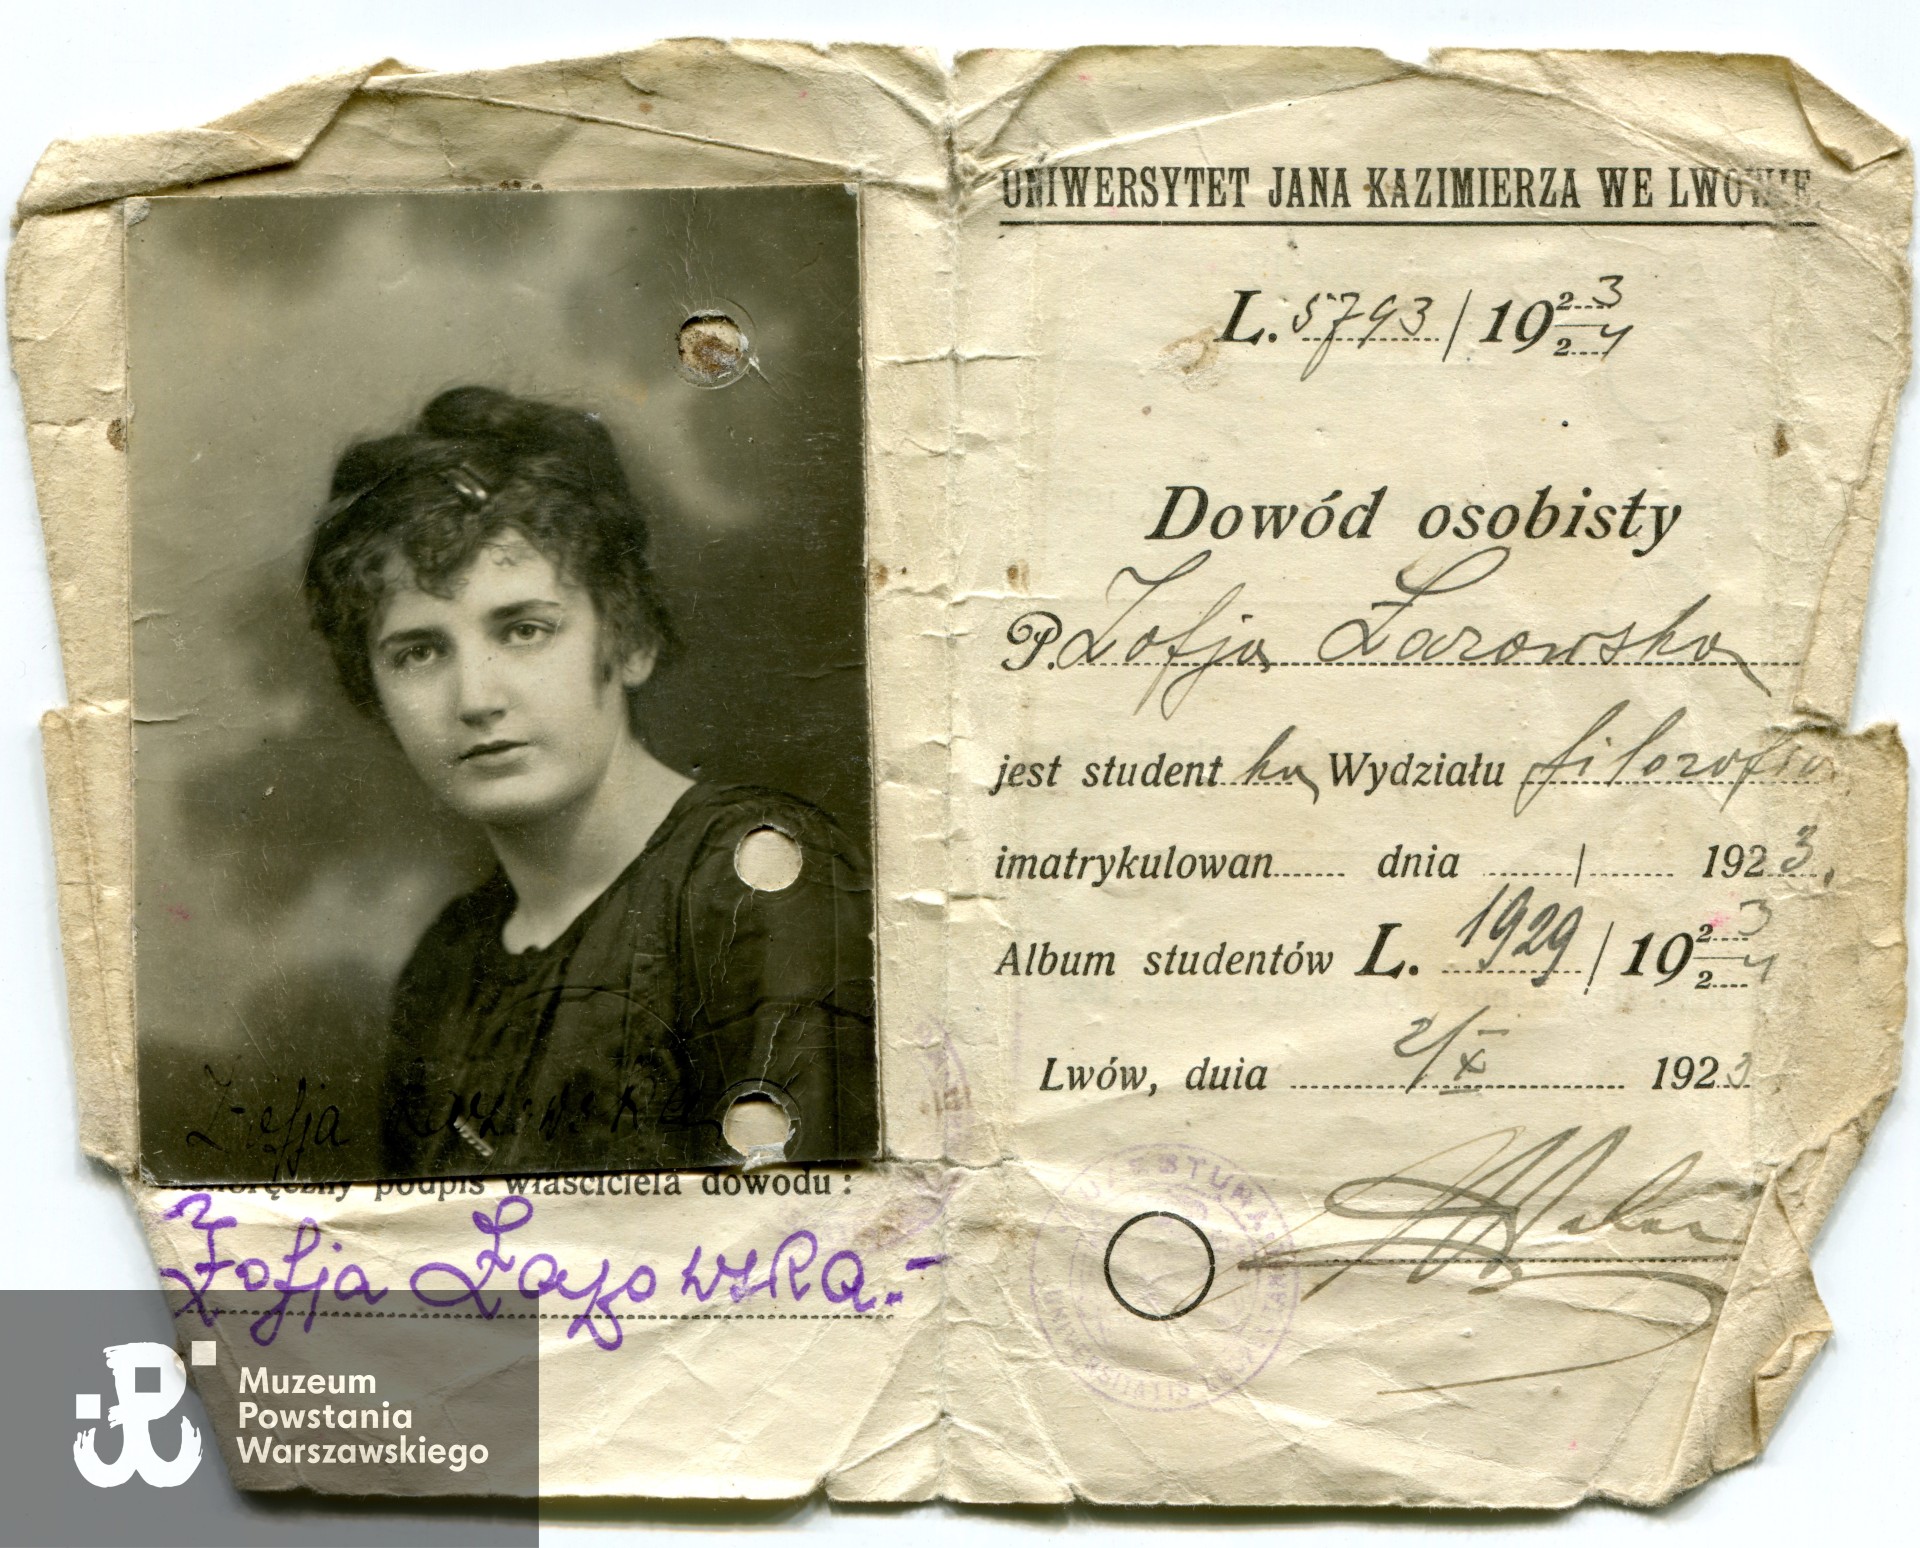 UNIWERSYTET JANA KAZIMIERZA WE LWOWIE.
L. 5793 / 19 23/24
Dowód osobisty
P. Zofja Łazowska
jest studentką Wydziału filozofic
imatrykulowan...... dnia ......./....... 1923.
Album studentów L. 1929 / 19 23/24
Lwów, dnia 2/X 1923
Zofja Łazowska
podpis właściciela dowodu:
Zofja Łazowska.-
UNIVERSITATIS
Muzeum
Powstania
Warszawskiego